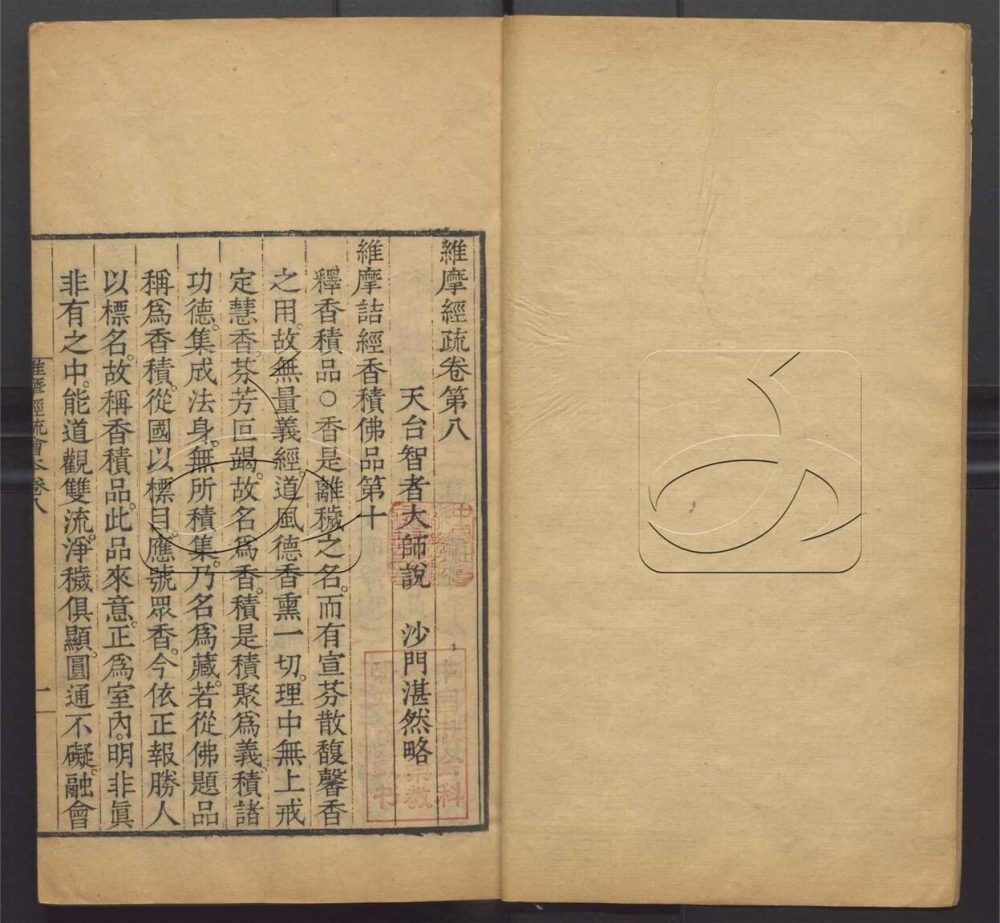 維摩經疏卷第八
天台智者大師說　沙門湛然略
維摩詰經香積佛品第十
釋香積品○香是離穢之名。而有宣芬散馥馨香
之用。故無量義經。道風德香熏一切。理中無上戒
定慧香。芬芳叵竭。故名爲香。積是積聚爲義積諸
功德。集成法身。無所積集。乃名爲藏。若從佛題品
稱爲香積。從國以標目。應號眾香。今依正報勝人
以標名。故稱香積品。此品來意。正爲室內。明非眞
非有之中。能道觀雙流。淨穢俱顯。圓通不礙。融會
維摩經疏會本卷八　一